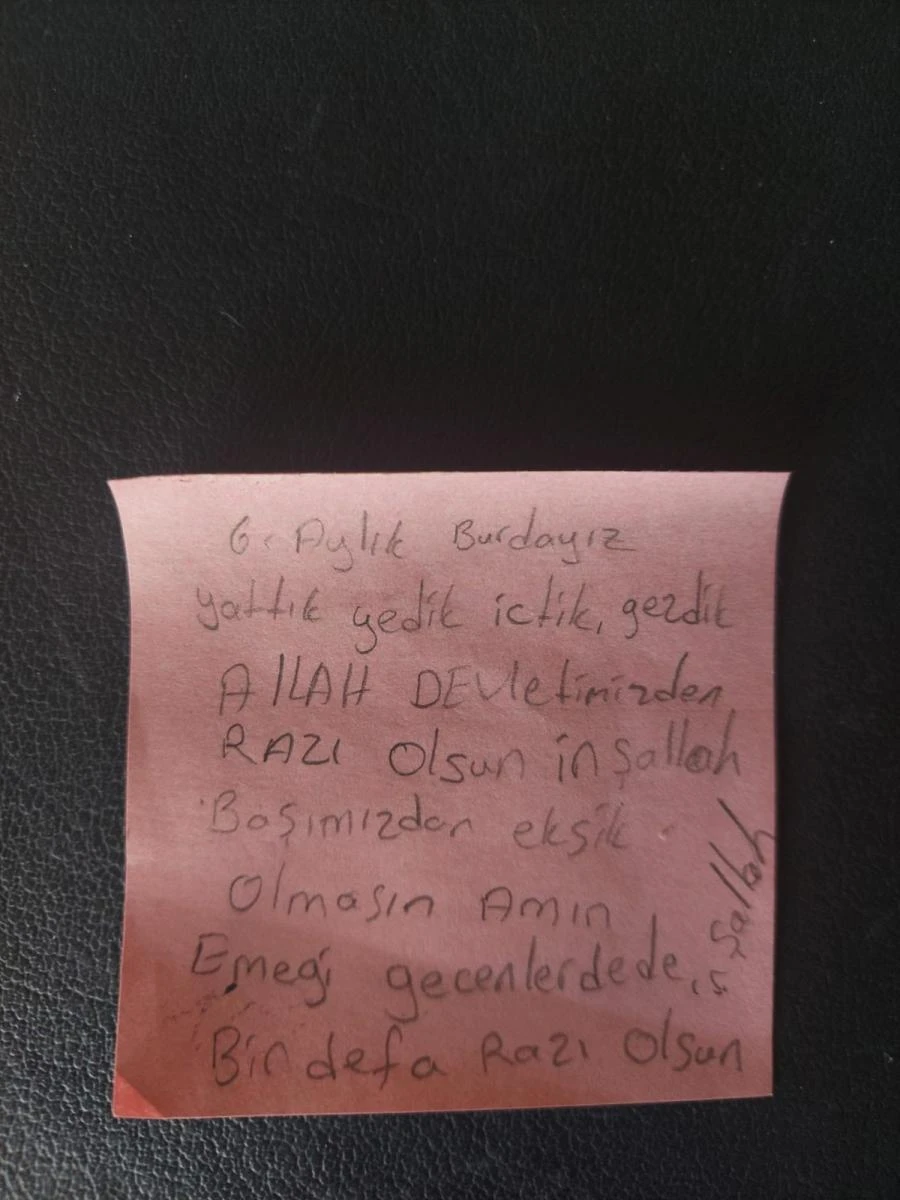 6. Aylık Burdayız
yattık yedik ictik, gezdik
AllAH DEVletimizden
RAZI Olsun inşallah
Başımızdan eksik
Olmasın Amın
Emegi gecenlerdede, işşallah
Bin defa Razı Olsun